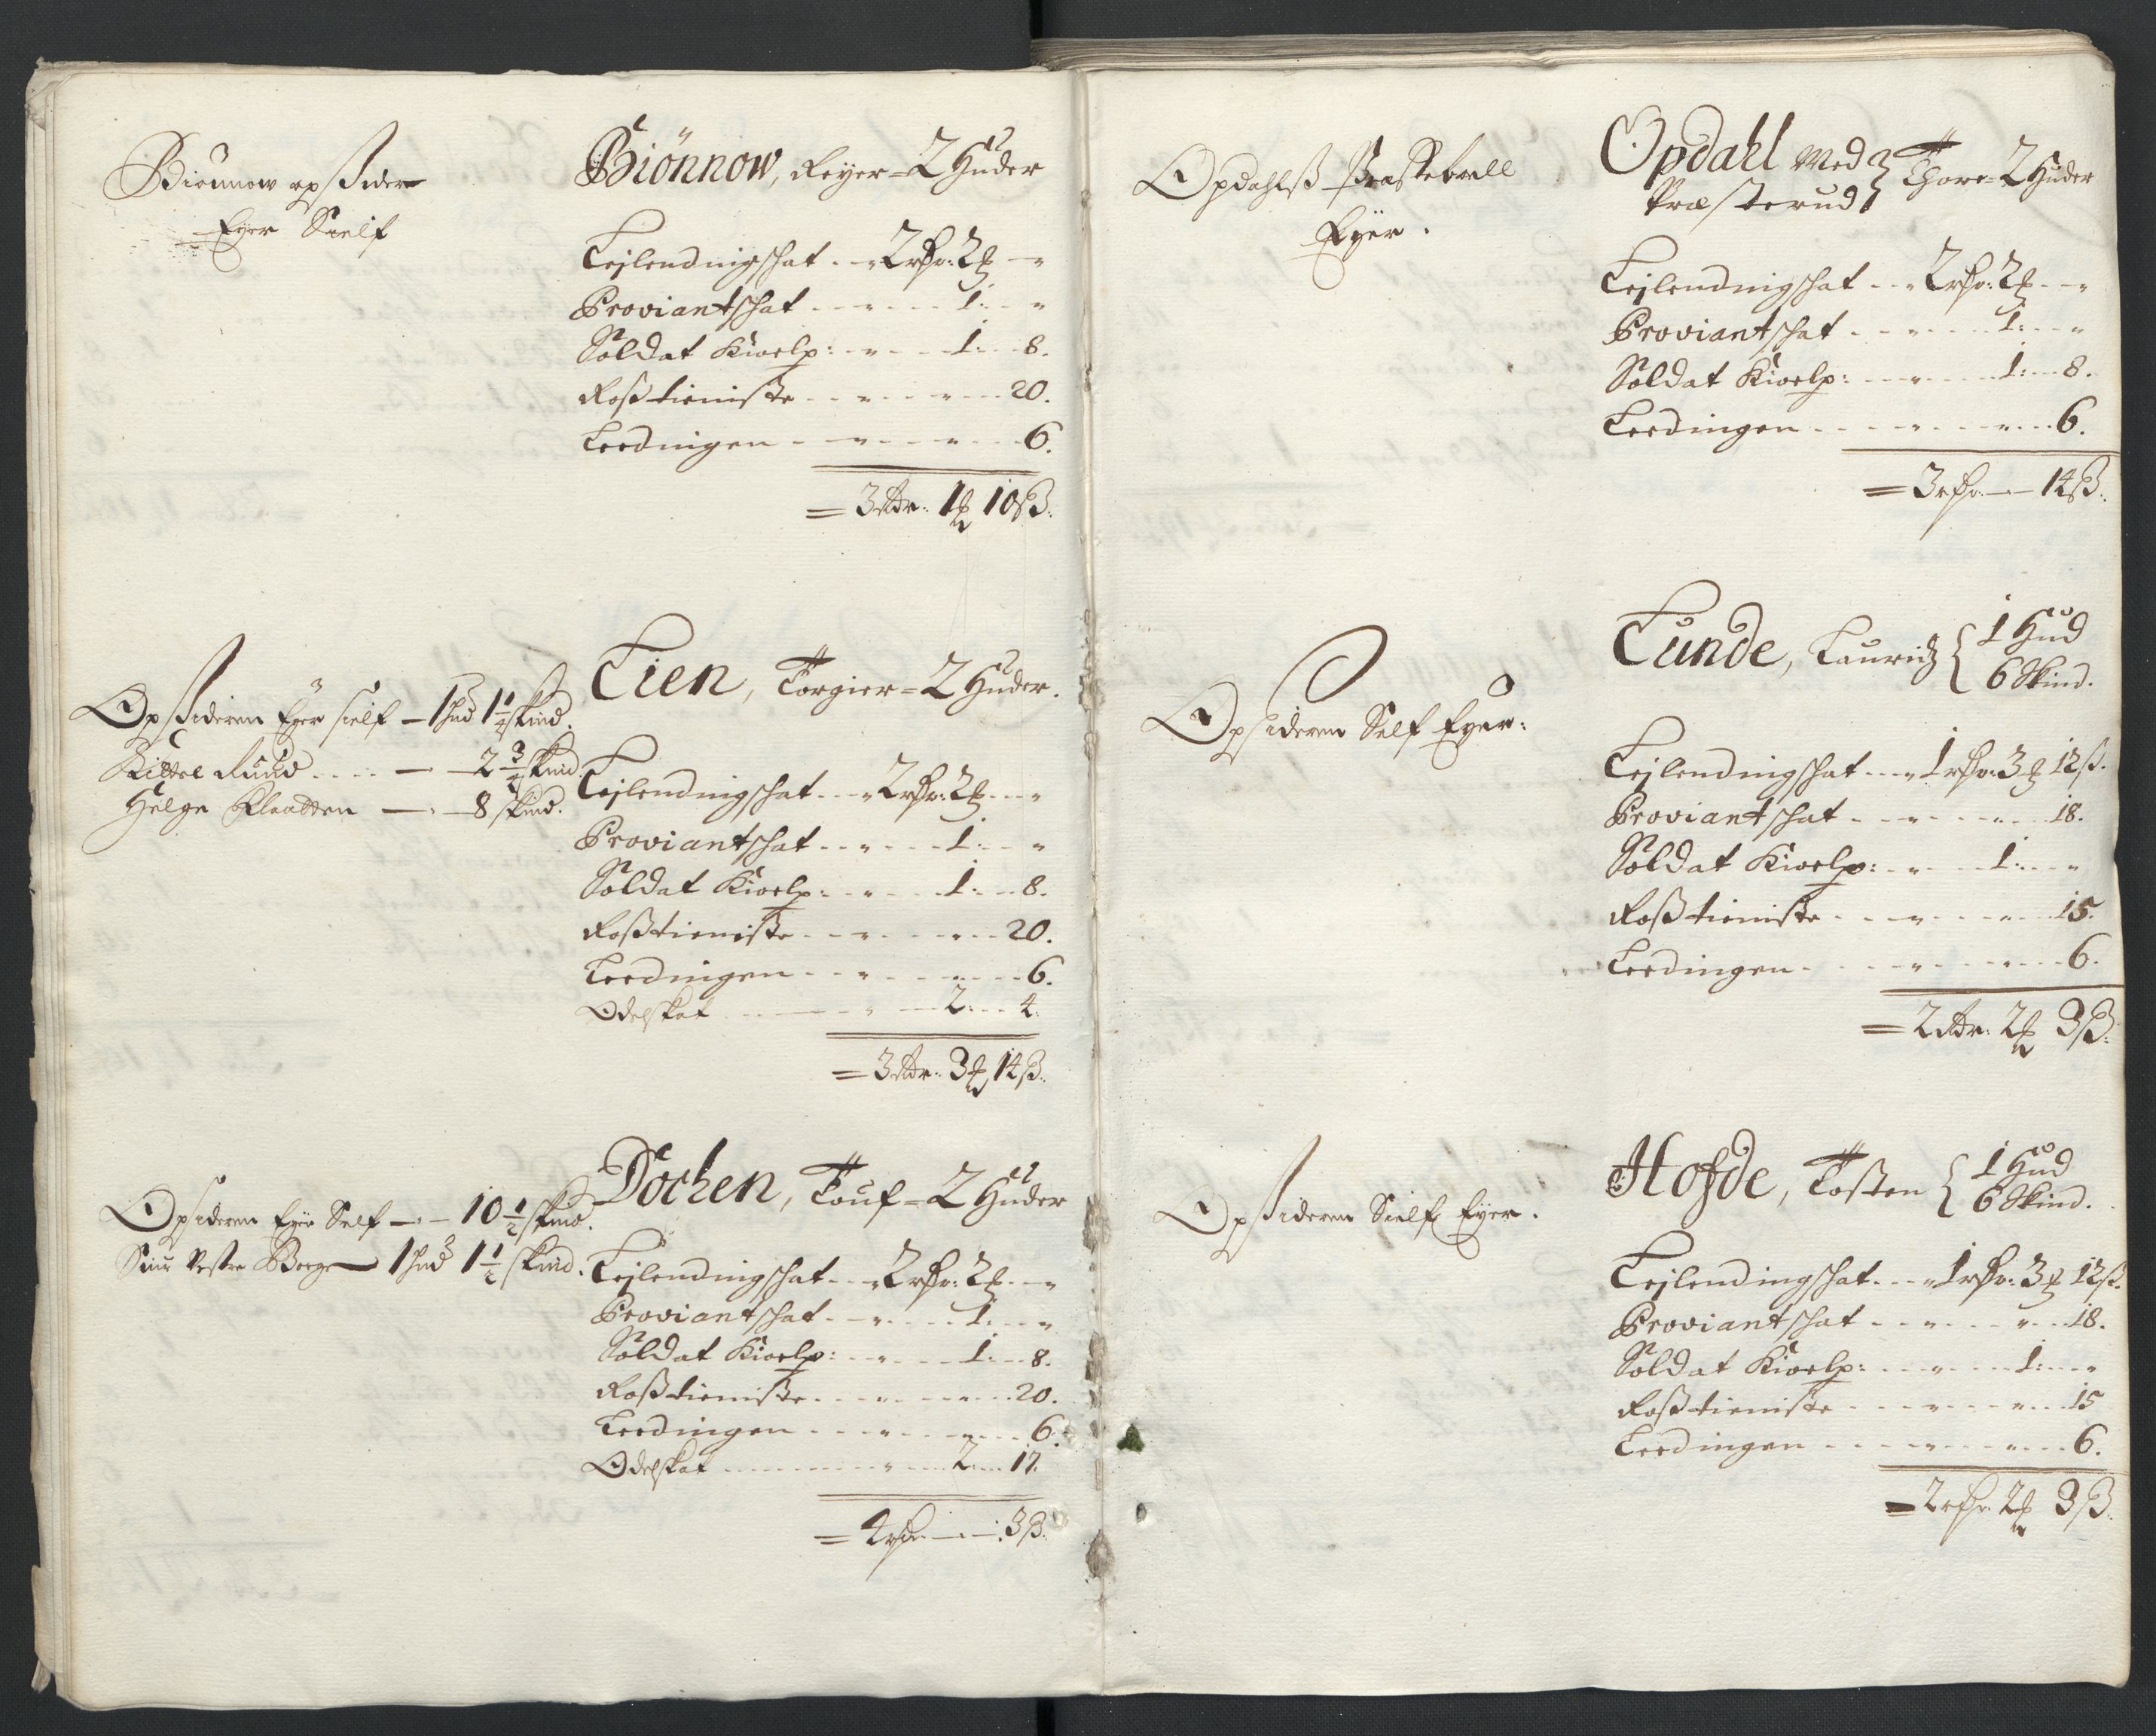 Bionnow opsider
Eyer Sielf
Biönnow, Reyer = 2 Huder
Lejlendingschat - - " 2 rdr: 2 ℔ - "
Proviantschat - - " - - - 1: - - "
Soldat Kioelp: - - " - - - 1: - - 8.
Roßtieniste - - " - - " - - 20.
Leedingen - - " - - " - - 6.
= 3 Rdr: 1 ℔ 10 ß.
Opsideren Eyer sielf — 1 hud 1 1/4 skind.
Kittel Ruud . . . . — — 2 3/4 skind.
Helge Klaatten — . — 8 skind.
Lien, Torgier = 2 Huder.
Lejlendingschat - - - " 2 rdr: 2 ℔ - - "
Proviantschat - - " - - - 1: - - "
Soldat Kioelp: - - " - - - 1: - - 8.
Roßtieniste - - " - - " - - 20.
Leedingen - - " - - " - - 6.
Odelskat - - - " - 2: - - 4.
= 3 Rdr: 3 ℔ 14 ß.
Opsideren Eyer Self — — 10 1/2 skind.
Siur Vestre Berge — 1 hud 1 1/2 skind.
Döcken, Touf = 2 Huder
Lejlendingschat - - " 2 rdr: 2 ℔ - - "
Proviantschat - - " - - - 1: - - "
Soldat Kioelp: - - " - - - 1: - - 8.
Roßtieniste - - " - - " - - 20.
Leedingen - - " - - " - - 6.
Odelskat - - - " - 2: - - 17.
= 4 rdr. — . — . 3 ß.
Opdahlß
Eyer.
Opdahl Med Præsterud } Thore = 2 Huder
Lejlendingschat - - " 2 rdr: 2 ℔ - - "
Proviantschat - - " - - - 1: - - "
Soldat Kioelp: - - " - - - 1: - - 8.
Leedingen - - " - - " - - 6.
= 3 rdr. — — 14 ß.
Opsideren Self Eyer:
Lunde, Lauridz { 1 Hud
6 Skind.
Lejlendingschat - - - " 1 rdr: 3 ℔ 12 ß.
Proviantschat - - " - - " - - 18.
Soldat Kioelp: - - " - - - 1: - - "
Roßtieniste - - " - - " - - 15.
Leedingen - - " - - " - - 6.
= 2 Rdr: 2 ℔ 3 ß.
Opsideren Sielf Eyer.
Hofde, Tosten { 1 Hud
6 Skind.
Lejlendingschat - - - " 1 rdr: 3 ℔ 12 ß.
Proviantschat - - " - - " - - 18.
Soldat Kioelp: - - " - - - 1: - - "
Roßtieniste - - " - - " - - 15
Leedingen - - " - - " - - 6.
= 2 rdr 2 ℔ 3 ß.